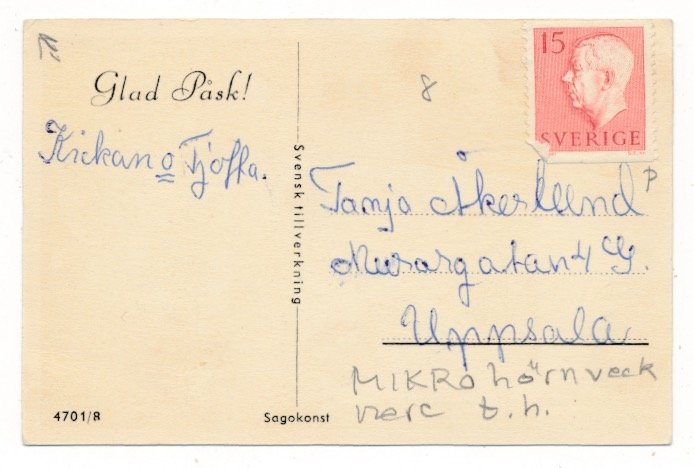 Glad Påsk!
Kickan o Tjoffa.
Svensk tillverkning
4701/8
Sagokonst
8
15
SVERIGE
p
Tanja Åkerlund
Murargatan 4
Uppsala
MIKRO hörnveck
nerc t.h.